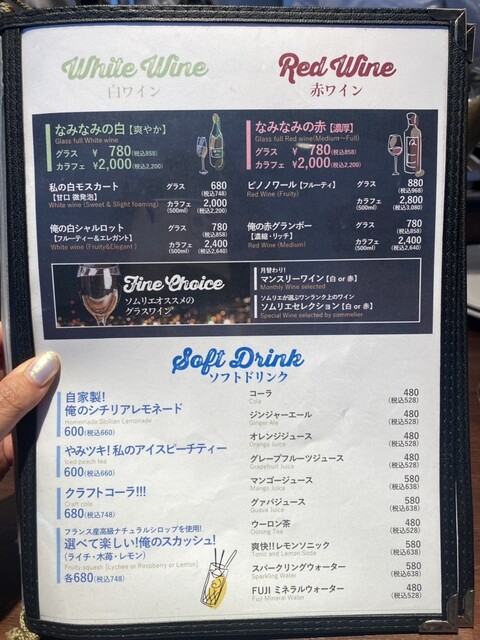 White Wine
白ワイン
Red Wine
赤ワイン
なみなみの白【爽やか】
Glass full White wine
グラス ¥ 780(税込858)
カラフェ ¥2,000(税込2,200)
なみなみの赤【濃厚】
Glass full Red wine(Medium~Full)
グラス 780(税込858)
カラフェ ¥2,000(税込2,200)
私の白モスカート グラス 680
【甘口 微発泡】 (税込748)
White wine (Sweet & Slight foaming) カラフェ 2,000
(500ml) (税込2,200)
俺の白シャルロット グラス 780
【フルーティー&エレガント】 (税込858)
White wine (Fruity&Elegant) カラフェ 2,400
(500ml) (税込2,640)
ピノノワール【フルーティ】 グラス 880
Red Wine (Fruity) (税込968)
カラフェ 2,800
(500ml) (税込3,080)
俺の赤グランボー グラス 780
【濃縮・リッチ】 (税込858)
Red Wine (Medium) カラフェ 2,400
(500ml) (税込2,640)
Fine Choice
ソムリエオススメの
グラスワイン
月替わり!
マンスリーワイン【白 or 赤】
Monthly Wine selected
ソムリエが選ぶワンランク上のワイン
ソムリエセレクション【白 or 赤】
Special Wine selected by sommelier
Soft Drink
ソフトドリンク
自家製!
俺のシチリアレモネード
Homemade Sicilian Lemonade
600(税込660)
やみツキ!私のアイスピーチティー
Iced peach tea
600(税込660)
クラフトコーラ!!!
Craft cola
680(税込748)
フランス産高級ナチュラルシロップを使用!
選べて楽しい!俺のスカッシュ!
(ライチ・木苺・レモン)
Fruity squash [Lychee or Raspberry or Lemon]
各680(税込748)
コーラ 480
Cola (税込528)
ジンジャーエール 480
Ginger Ale (税込528)
オレンジジュース 480
Orange Juice (税込528)
グレープフルーツジュース 480
Grapefruit Juice (税込528)
マンゴージュース 580
Mango Juice (税込638)
グァバジュース 580
Guava Juice (税込638)
ウーロン茶 480
Oolong Tea (税込528)
爽快!!レモンソニック 580
Tonic and Lemon Soda (税込638)
スパークリングウォーター 580
Sparkling Water (税込638)
FUJI ミネラルウォーター 480
Fuji Mineral Water (税込528)